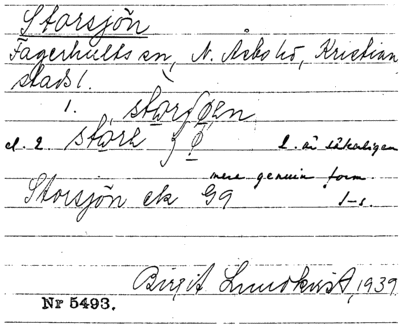 Storsjön
Fagerhults sn, N. Åsbo hd, Kristian
stads l.
1. storʃøen
el. 2 ʃø 2. är säkerligen
mera genuin form.
Storsjön ek G9 1-1.
Birgit Lundkvist, 1939
Nr 5493.